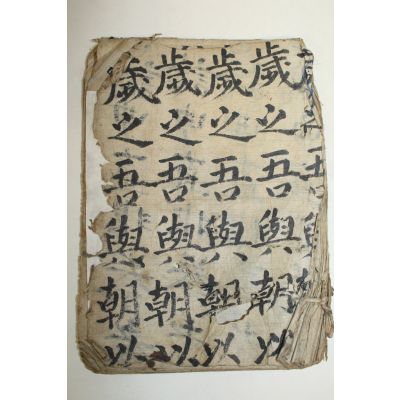 歲之吾與朝以
歲之吾與朝以
歲之吾與朝以
歲之吾與朝以